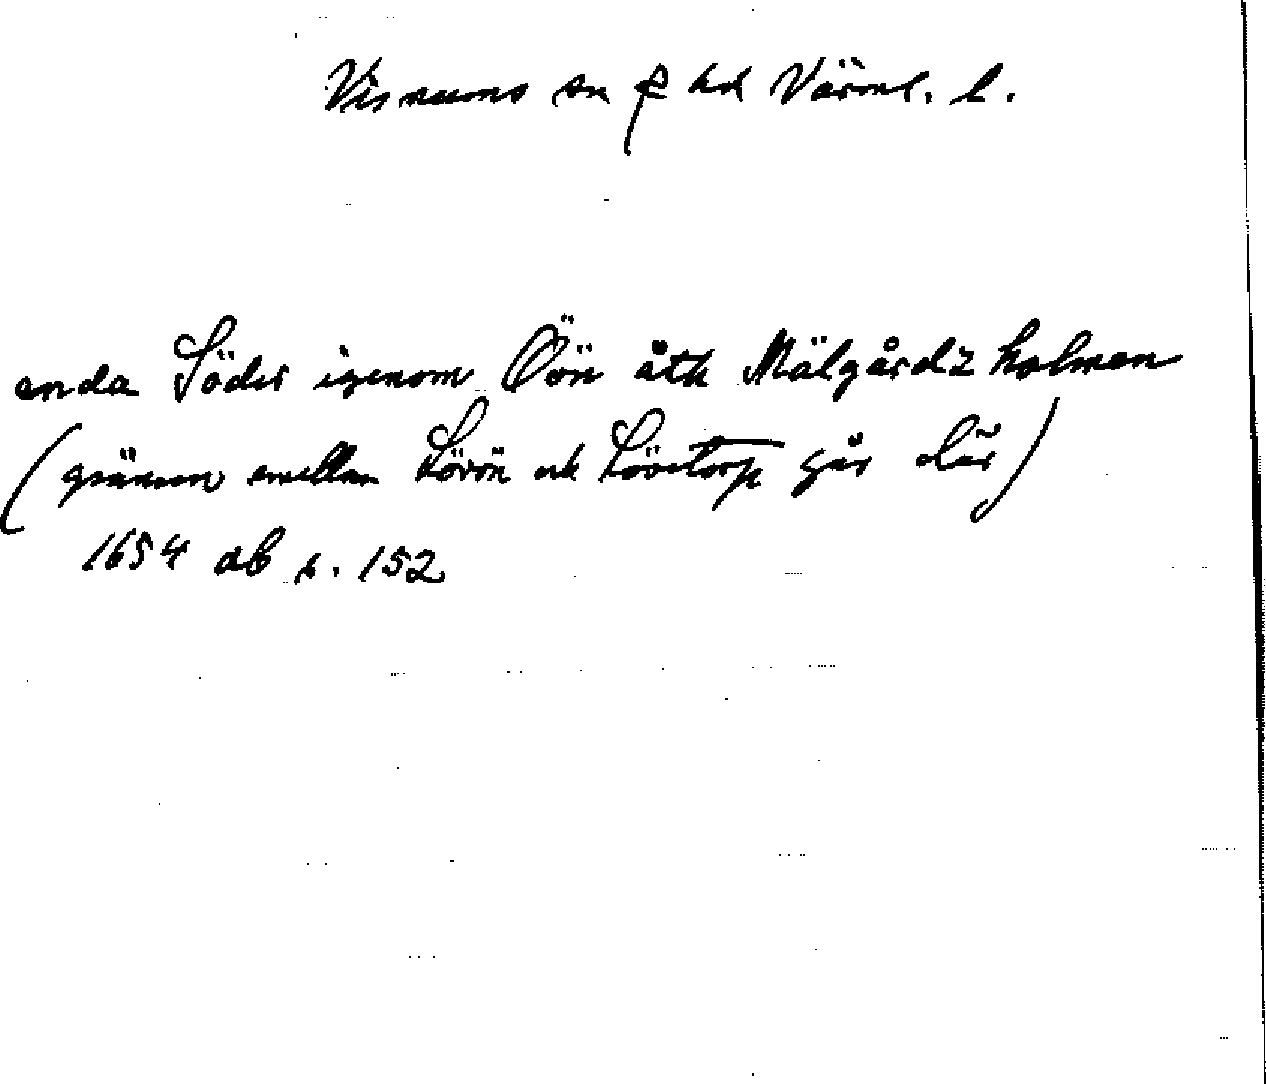 Visnums sn hd Värml. l.
enda Söder igenom Öön åth Mälgårdz holmen
(gränsen mellan Lövön och Lövetorp går där)
1654 ab s. 152